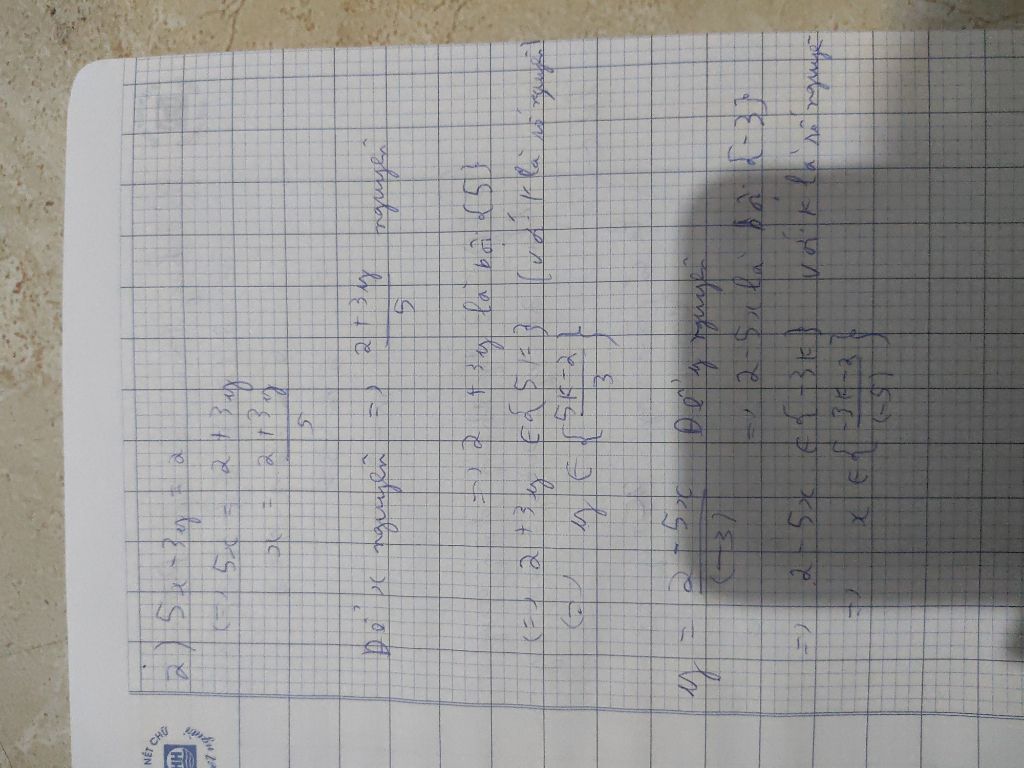 a) 5x - 3y = 2
(=) 5x = 2 + 3y
x = 2+3y / 5
Để x nguyên => 2+3y / 5 nguyên
=> 2 + 3y là bội {5}
(=) 2 + 3y ∈ {5K} (với K là số nguyên)
(=) y ∈ {5K-2 / 3}
y = 2-5x / (-3) Để y nguyên
=> 2-5x là bội {-3}
=> 2-5x ∈ {-3K} với K là số nguyê
=> x ∈ {-3K-2 / (-5)}
NÉT CHỮ
HH